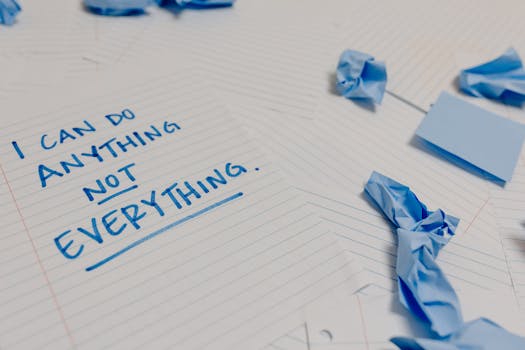 I CAN DO
ANYTHING
NOT
EVERYTHING.